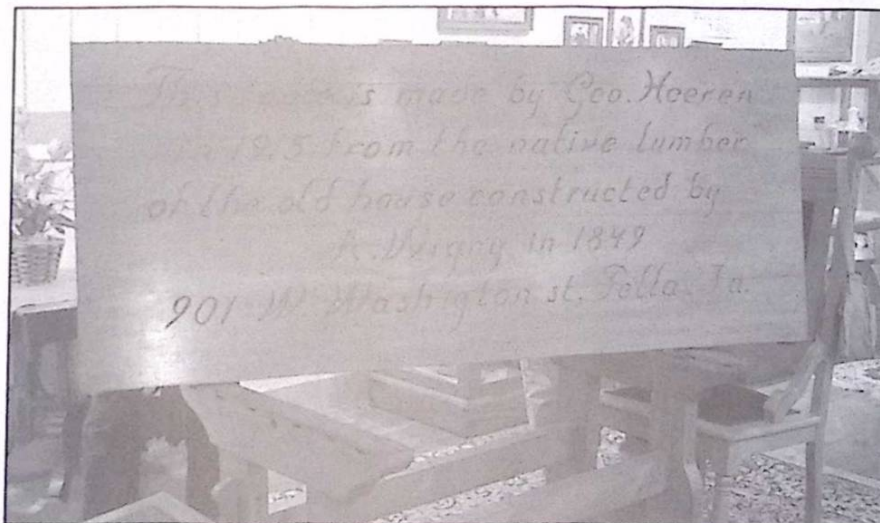 This is made by Geo. Heeren
in from the native lumber
of the old house constructed by
A. in 1849
901 W Washigton st. Pella, Ia.